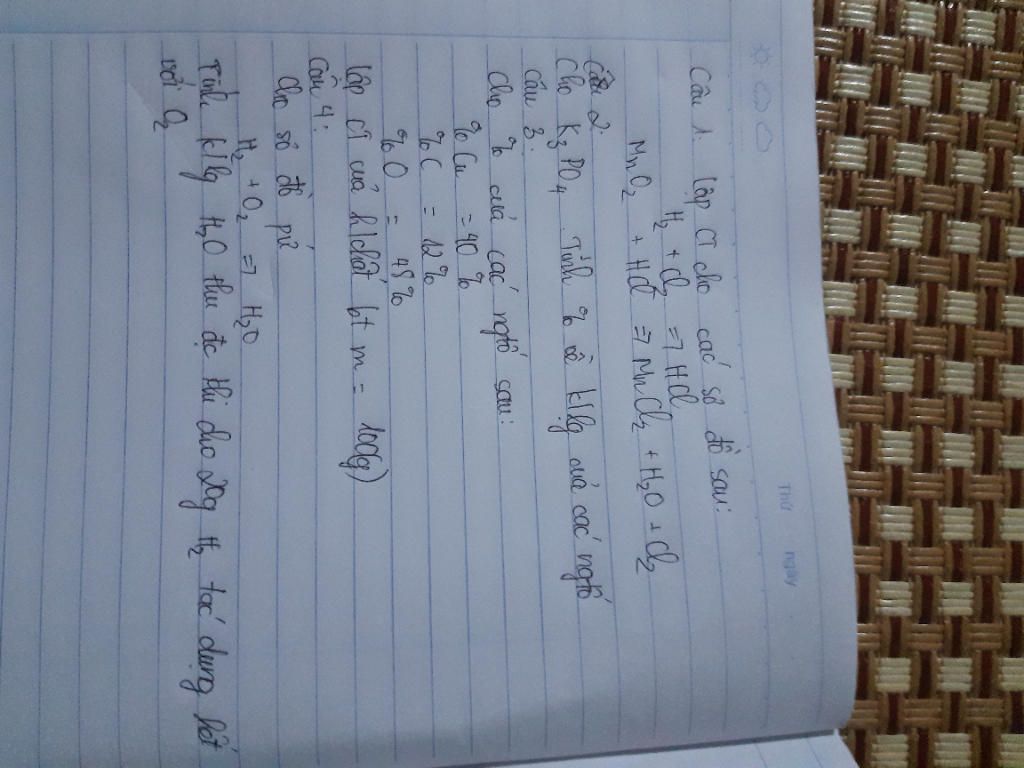 Thứ ngày
Câu 1. Lập CT cho các sơ đồ sau:
H₂ + Cl₂ => HCl
MnO₂ + HCl => MnCl₂ + H₂O + Cl₂
Câu 2.
Cho K₃PO₄. Tính % về k/lg của các ngtố
Câu 3.
Cho % của các ngtố sau:
% Cu = 40 %
% C = 12 %
% O = 48 %
Lập CT của h/chất bt m = 100(g)
Câu 4:
Cho sơ đồ pứ
H₂ + O₂ => H₂O
Tính k/lg H₂O thu đc khi cho 20g H₂ tác dụng hết
với O₂